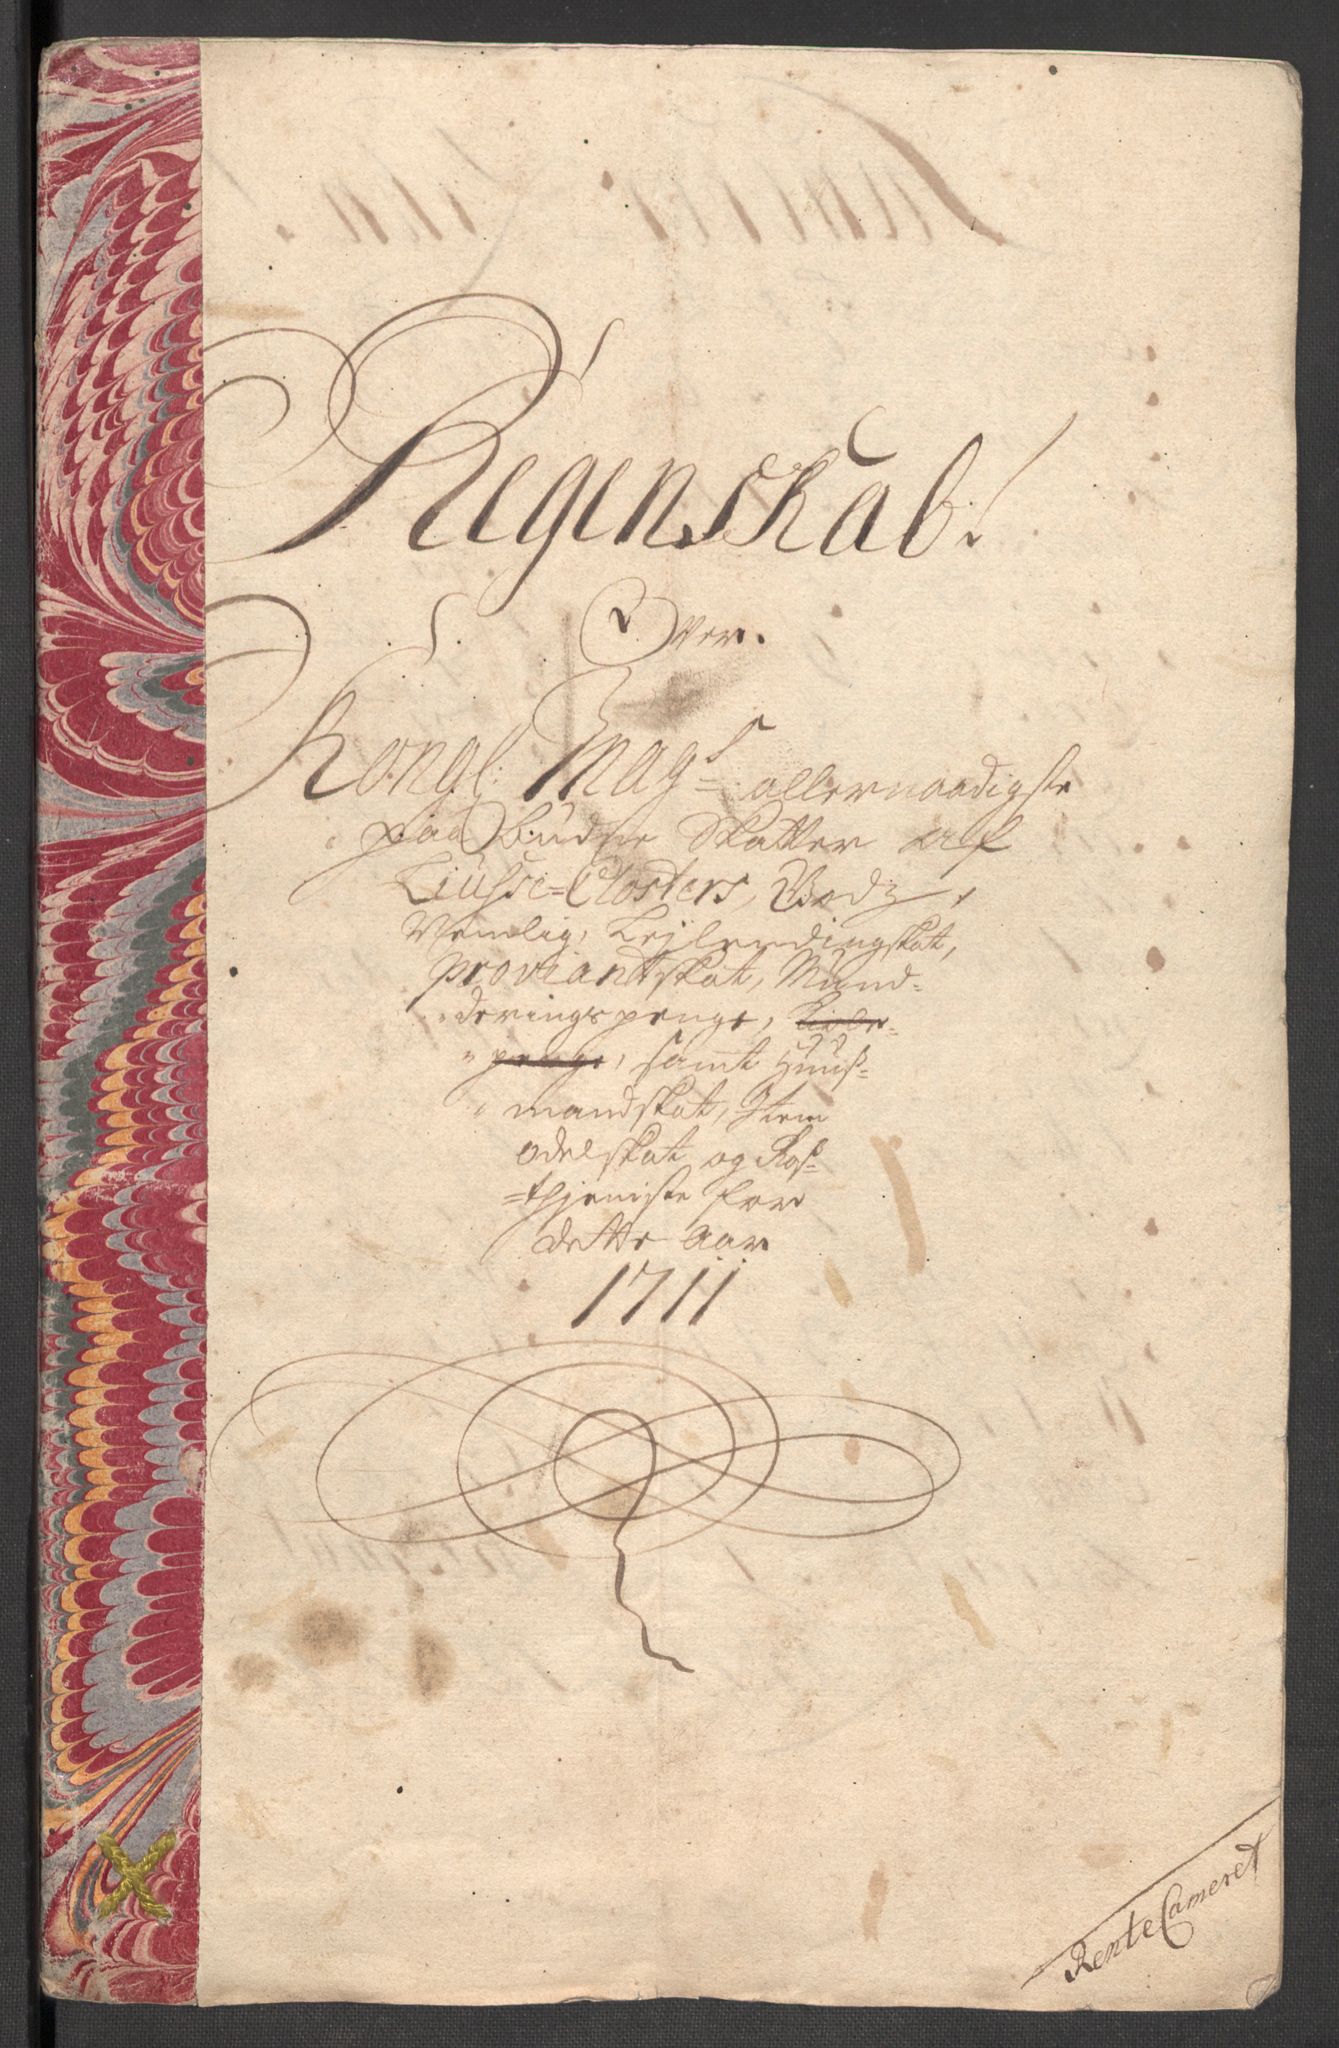 Regenskab
Over
Kongl. Mag.ts allernaadigste
paabudne Skatter af
Liusse-Closters Godz,
Nemlig, Leylendingskat,
Proviantskat, Mund-
deringspenge,
penge, samt Huus-
mandskat, Item
Odelskat og Ros-
thjeniste for
dette Aar
1711
Rente Cameret